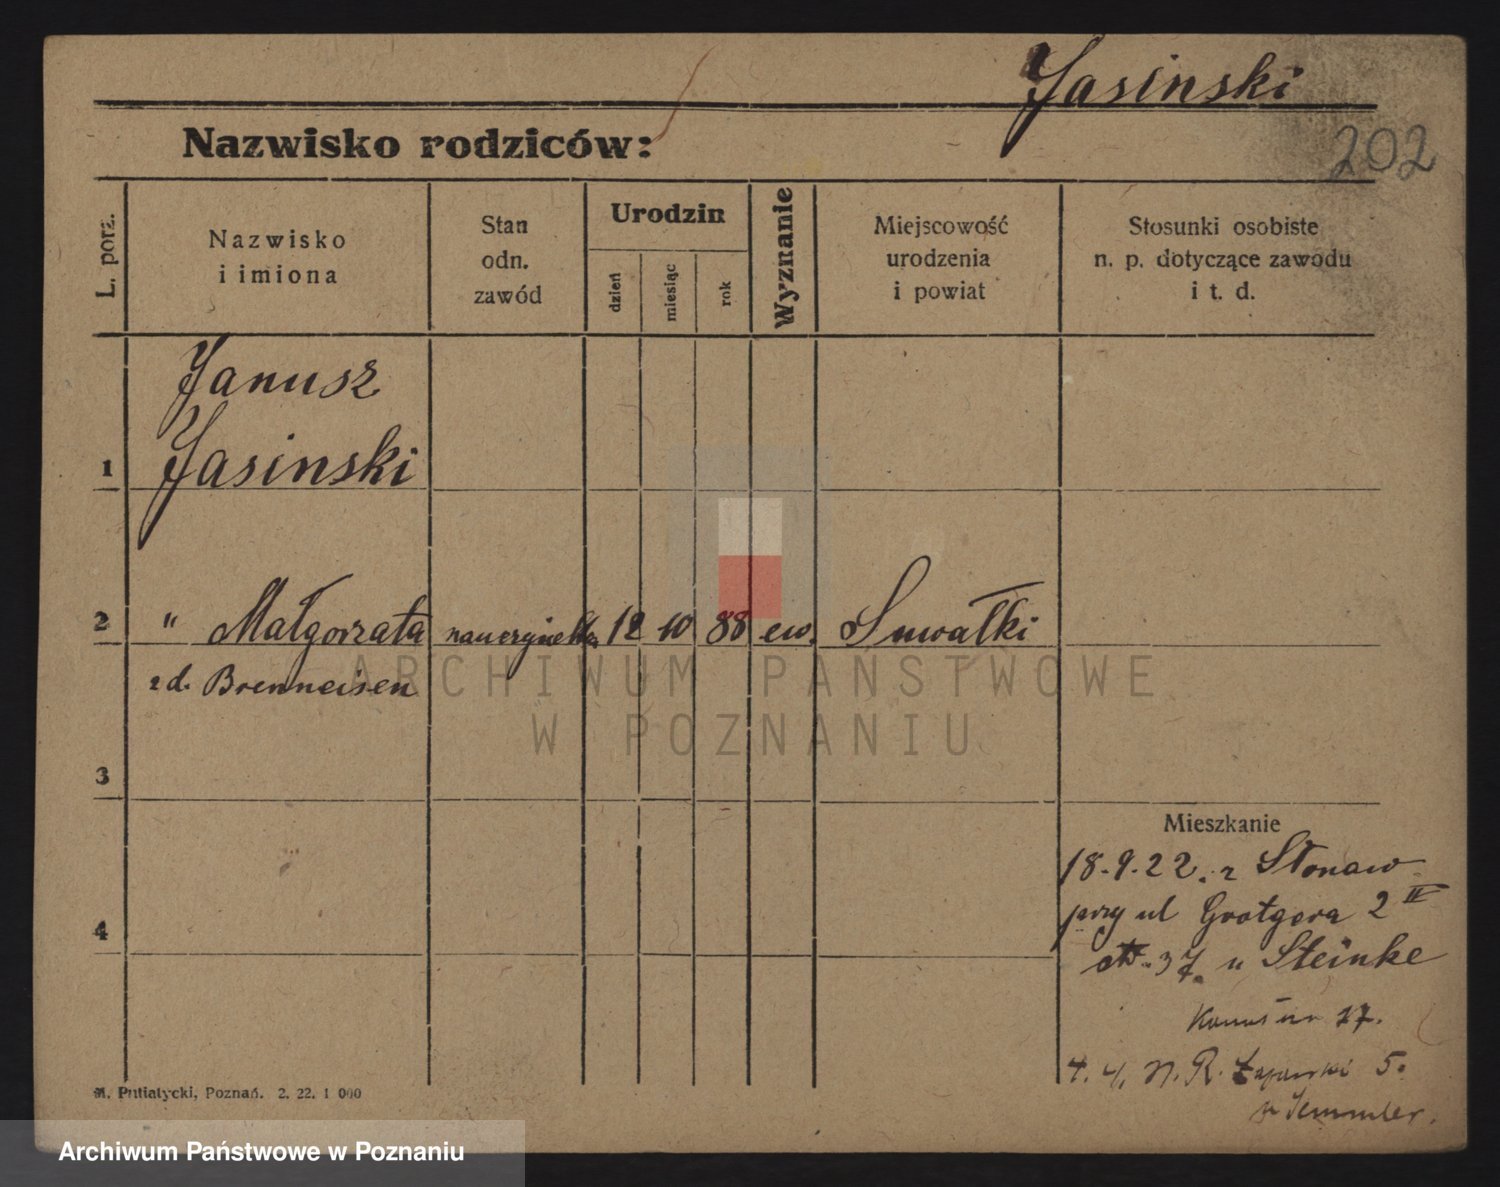 Jasinski
202
Nazwisko rodziców:
L. porz.
Nazwisko
i imiona
Stan
odn.
zawód
Urodzin
dzień
miesiąc
rok
Wyznanie
Miejscowość
urodzenia
i powiat
Stosunki osobiste
n. p. dotyczące zawodu
i t. d.
Janusz
1 Jasinski
2 " Małgorzata nauczycielka 12 10 88 ew. Suwałki
zd. Brenneisen
3
4
Mieszkanie
18.9.22. z Stonaw
przy ul Grotgera 2 II
37 u Steinke
27.
4. 4. R. 5.
u Semmler.
M. Putiatycki, Poznań. 2. 22. 1 000
ARCHIWUM PAŃSTWOWE
W POZNANIU
Archiwum Państwowe w Poznaniu